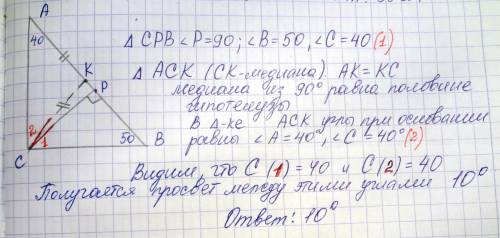 A
40
K
P
2
1
50
C
B
Δ CPB ∠P=90; ∠B=50, ∠C=40 (1)
Δ ACK (CK-медиана). AK=KC
медиана из 90° равна половине
гипотенузы
В Δ-ке ACK углы при основании
равны ∠A=40°, ∠C=40° (2)
Видим, что C (1)=40 и C(2)=40
Получается просвет между этими углами 10°
Ответ: 10°